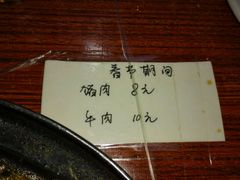 春节期间
猪肉 8元
牛肉 10元